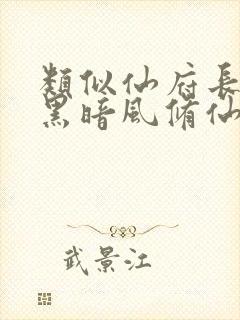 類似仙府長
黑暗風脩仙
武景江